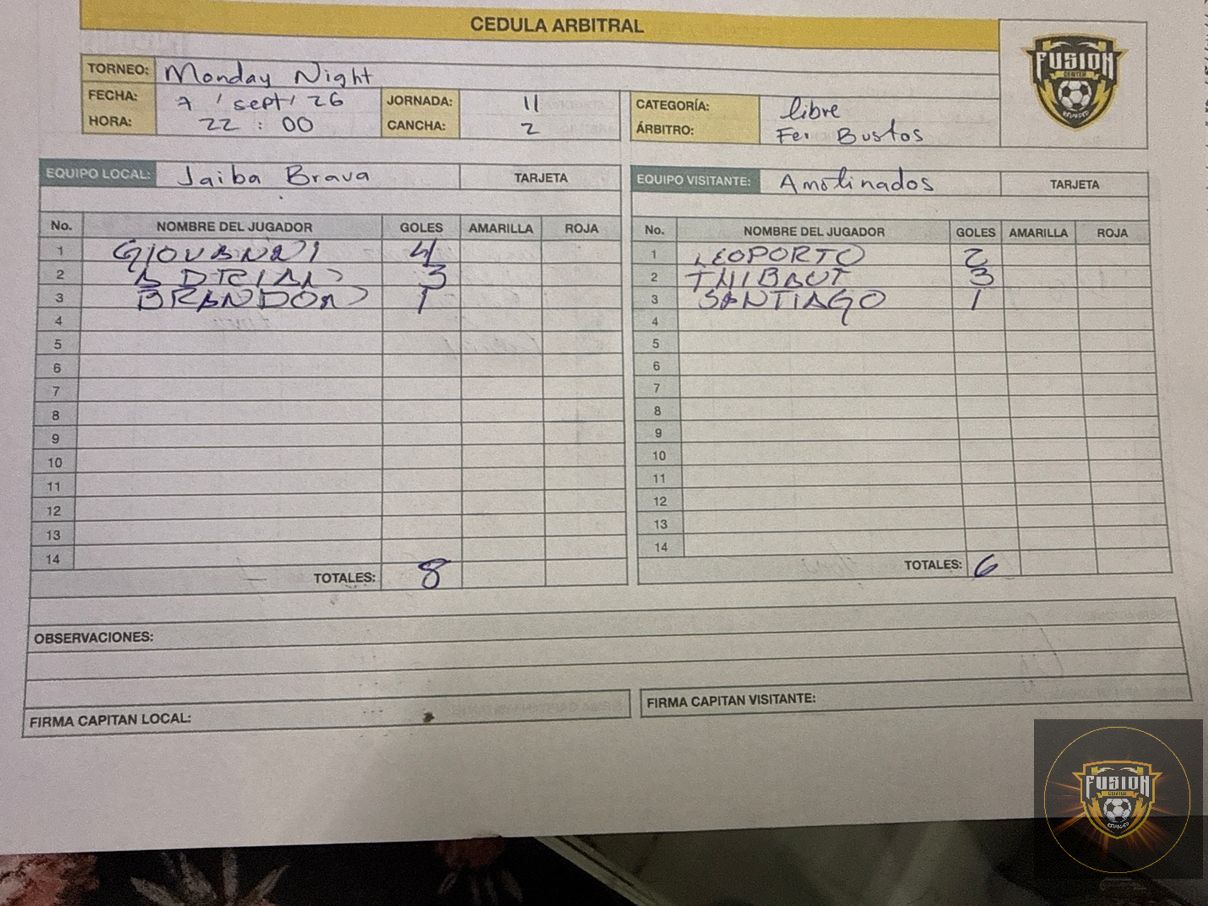 CEDULA ARBITRAL
FUSION
CENTER
TORNEO: Monday Night
FECHA: 7 / sept / 26
JORNADA: 11
CATEGORÍA: libre
HORA: 22 : 00
CANCHA: 2
ÁRBITRO: Fer Bustos
EQUIPO LOCAL: Jaiba Brava TARJETA
No. NOMBRE DEL JUGADOR GOLES AMARILLA ROJA
1 GIOVANNI 4
2 ADRIAN 3
3 BRANDON 1
4
5
6
7
8
9
10
11
12
13
14
TOTALES: 8
EQUIPO VISITANTE: Amotinados TARJETA
No. NOMBRE DEL JUGADOR GOLES AMARILLA ROJA
1 LEOPORTO 2
2 THIBAUT 3
3 SANTIAGO 1
4
5
6
7
8
9
10
11
12
13
14
TOTALES: 6
OBSERVACIONES:
FIRMA CAPITAN LOCAL:
FIRMA CAPITAN VISITANTE:
FUSION
CENTER